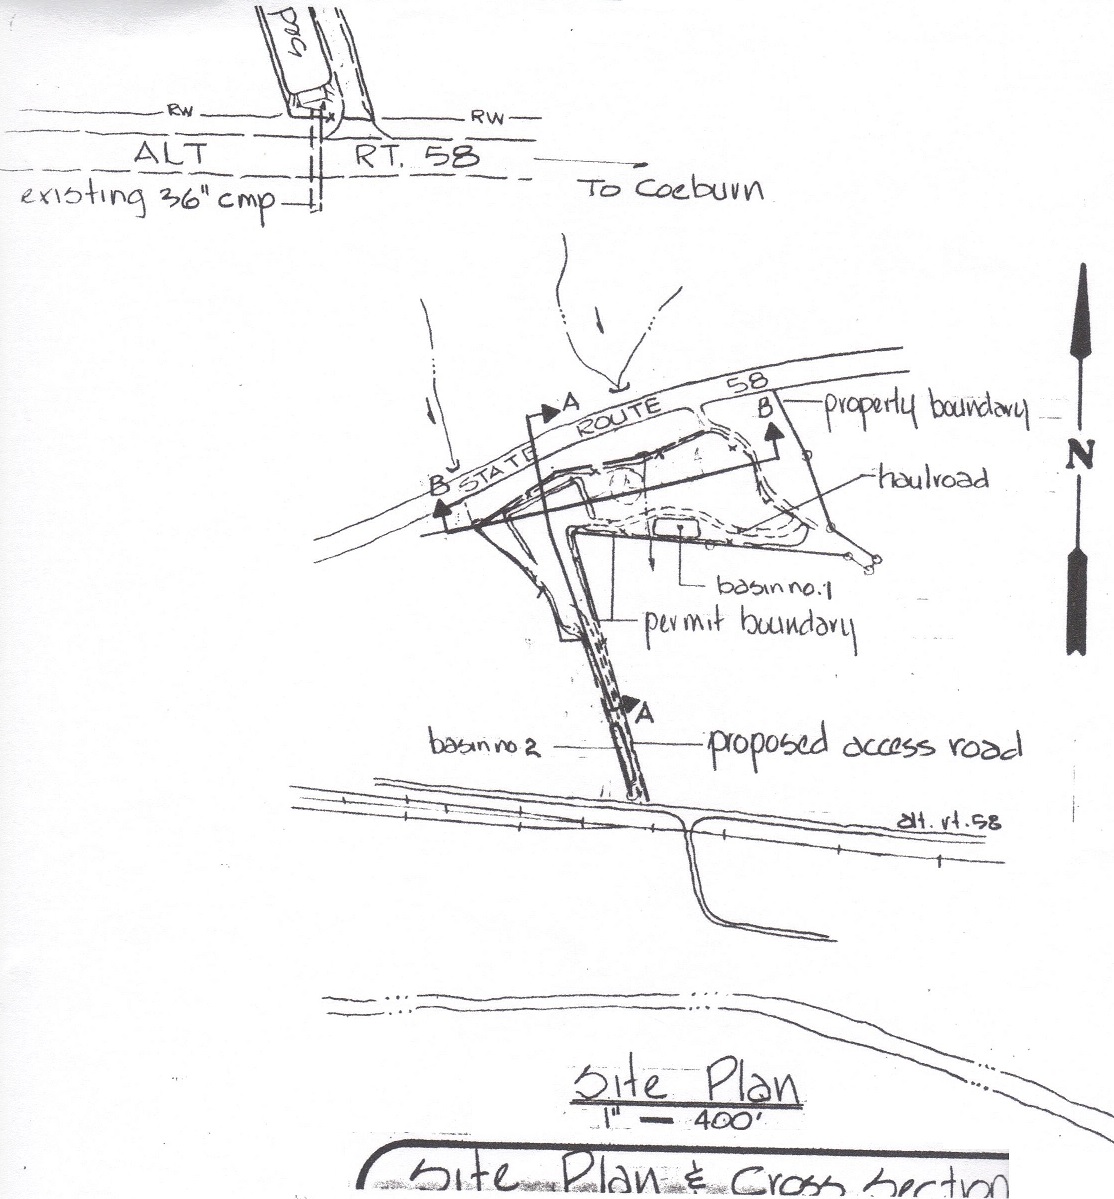 RW
RW
ALT RT. 58
To Coeburn
existing 36" cmp
A
58
B
property boundary
STATE ROUTE
B
N
haulroad
basin no. 1
permit boundary
A
basin no 2
proposed access road
alt. rt. 58
Site Plan
1" — 400'
Site Plan & Cross Section